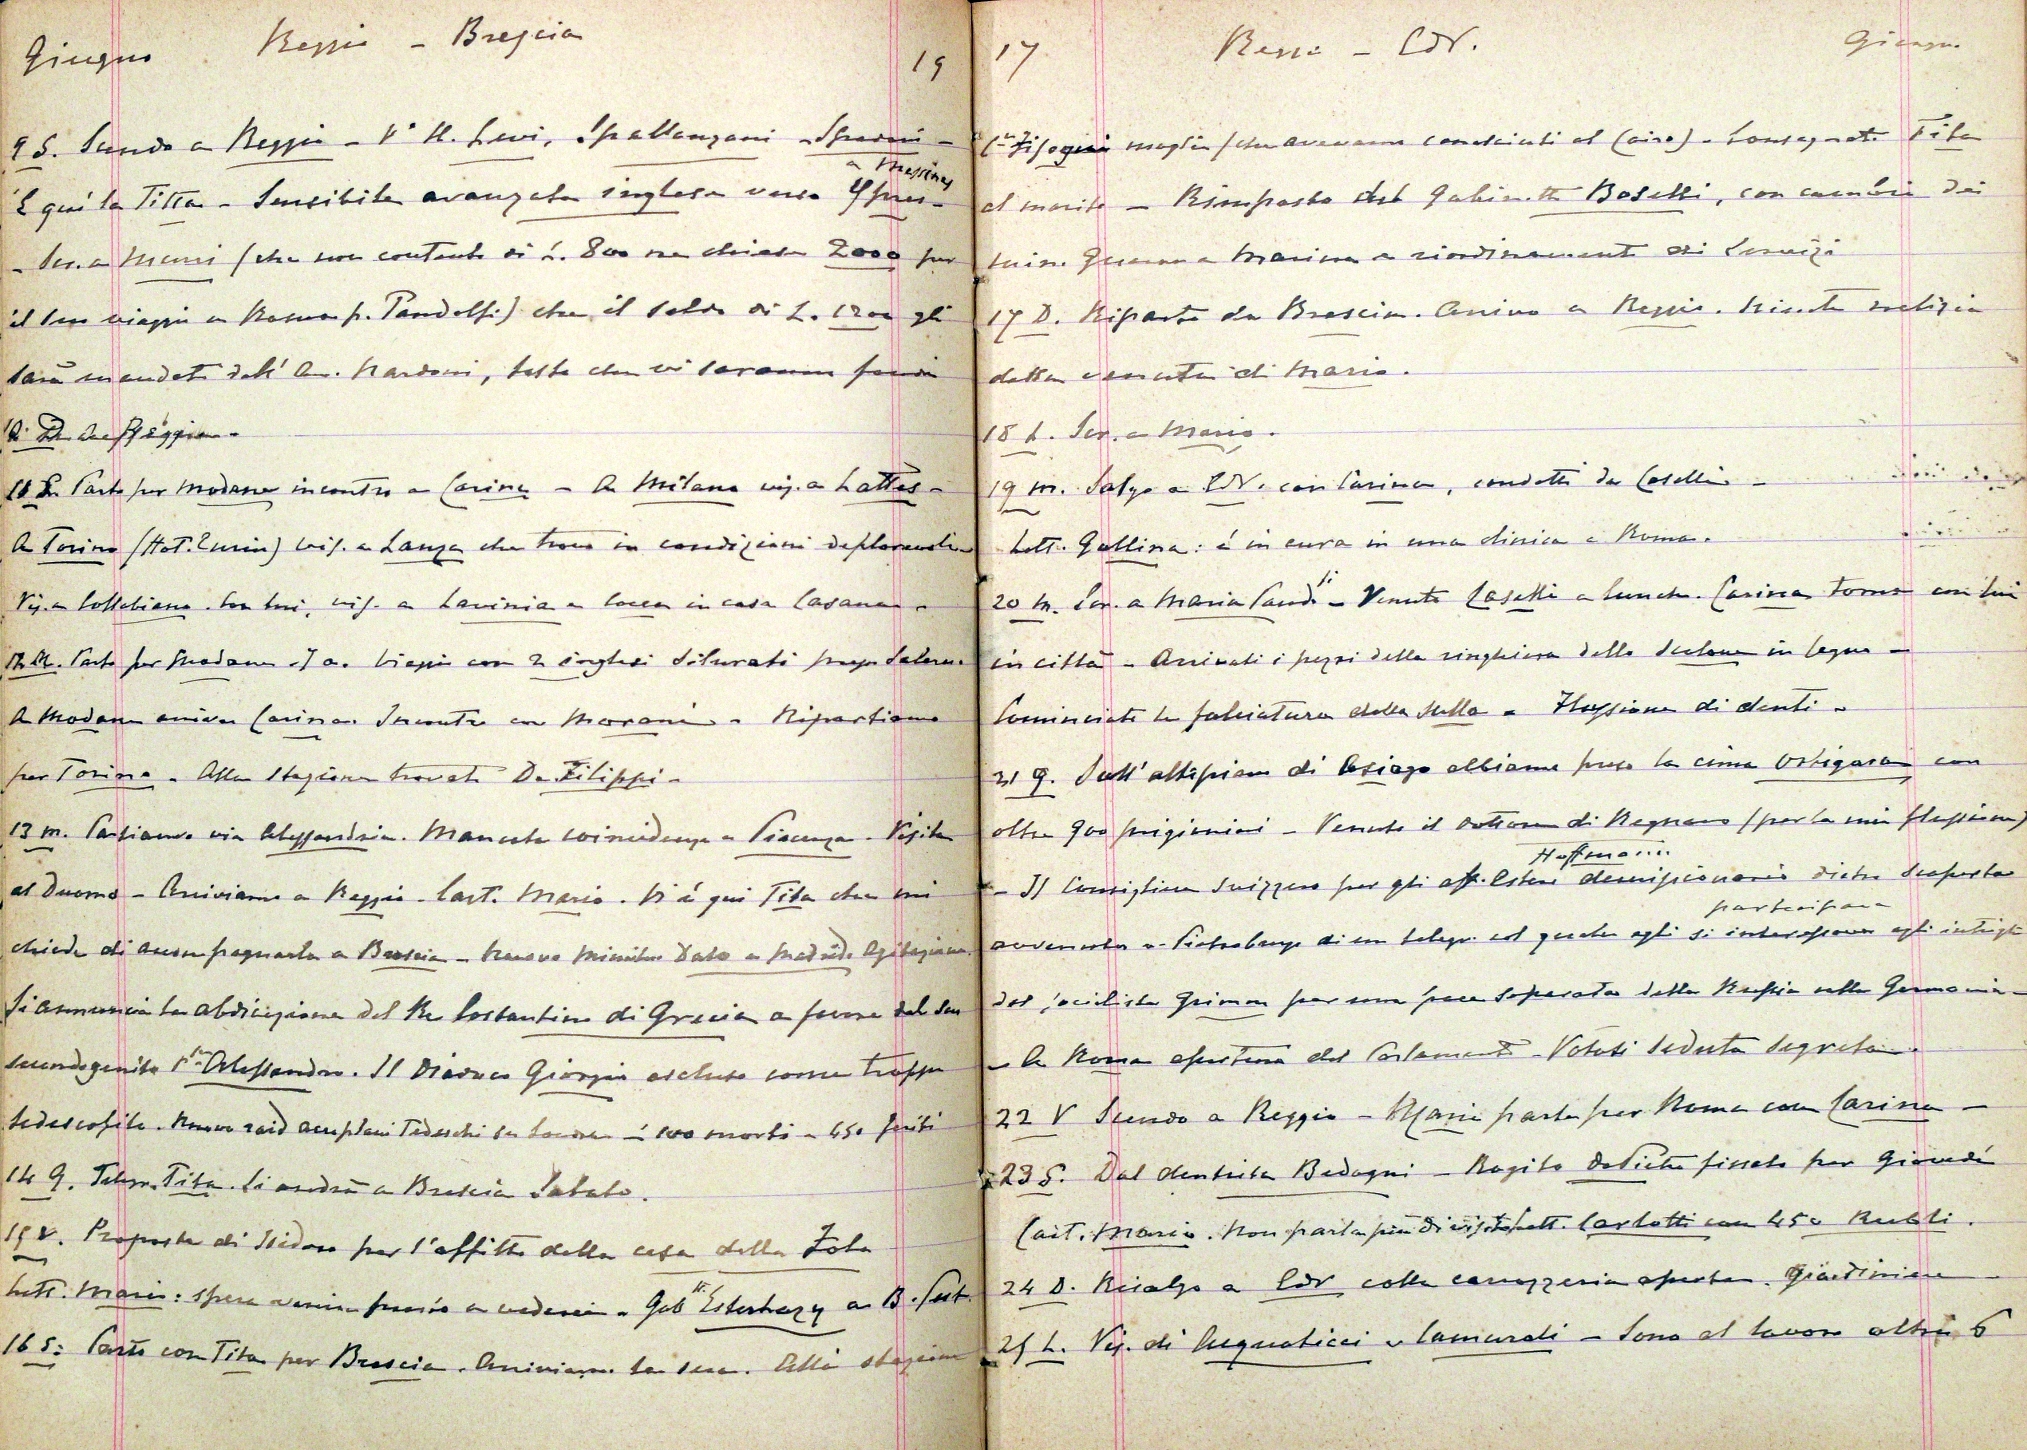 Giugno Reggio - Brescia 19
9 S. Scendo a Reggio - Vo H. Levi, Spallanzani -
a Messines
È qui la Titta - Sensibile avanzata inglese verso Ypres -
- Scr. a Manni (che non contento di L. 800 ne chiese 2000 per
il suo viaggio a Roma p. Pandolfi) che il saldo di L. 1200 gli
sarà mandato dall' Av. Nardoni, tosto che vi saranno fondi
10 D. a Reggio -
11 L. Parto per Modane incontro a Carina - A Milano vis. a Lattes -
A Torino (Hot. Turin) vis. a Lanza che trovo in condizioni deplorevoli -
Vis. a Collobiano. Con lui, vis. a Lavinia e in casa Casana -
12 M. Parto per Modane 7 a. Viaggio con 2 inglesi silurati presso
A Modane arriva Carina. Incontro con Morani - Ripartiamo
per Torino - Alla stazione trovato De Filippi -
13 M. Partiamo via Alessandria. Mancata coincidenza a Piacenza - Visita
al Duomo - Arriviamo a Reggio - Cart. Mario. Vi è qui Tita che mi
chiede di accompagnarla a Brescia - Nuovo Ministro Dato a Madrid. Agitazione
Si annuncia la abdicazione del Re Costantino di Grecia a favore del suo
secondogenito Alessandro. Il Diadoco Giorgio escluso come troppo
tedescofilo. Nuovo raid aeroplani Tedeschi su Londra - 100 morti - 450 feriti
14 G. Telegr. Tita. Si andrà a Brescia Sabato.
15 V. Proposta di Isidoro per l'affitto della casa della Zola
Lett. Mario: spera venire presto a vederci - Gab. Esterhazy a B. Pest.
16 S: Parto con Tita per Brescia. Arriviamo la sera. Alla stazione
17 Reggio - CdV. Giugno
moglie (che avevamo conosciuti al Cairo) - Consegnata Tita
al marito - Rimpasto del Gabinetto Boselli, con cambio dei
min. Guerra e Marina e riordinamento di Servizi
17 D. Riparto da Brescia. Arrivo a Reggio. Ricevuta notizia
della venuta di Mario.
18 L. Scr. a Mario.
19 M. Salgo a CdV. con Carina, condotti da Caselli -
Lett. Gallina: è in cura in una clinica a Roma.
20 M. Scr. a Maria - Venuto Caselli a lunch. Carina torna con lui
in città - Arrivati i pezzi della ringhiera dello scalone in legno -
Cominciata la falciatura della Sulla - Flussione di denti -
21 G. Sull'altopiano di Asiago abbiamo preso la cima Ortigara, con
oltre 900 prigionieri - Venuto il dottore di Regnano (per la mia flussione)
Hoffmann
- Il Consigliere Svizzero per gli aff. Esteri dimissionario dietro scoperta
partecipava
avvenuta a Pietroburgo di un telegr. col quale egli si interessava agli intrighi
del socialista Grimm per una pace separata della Russia colla Germania -
- A Roma apertura del Parlamento - Votasi seduta segreta -
22 V Scendo a Reggio - Mario parte per Roma con Carina -
23 S. Dal dentista Bedogni - Rogito fissato per Giovedì
Cart. Mario. Non parla più di visita. Lett. Carlotti con 450 Rubli.
24 D. Risalgo a CdV colla carrozzeria aperta. Giardiniere
25 L. Vis. di e Camurati - Sono al lavoro altri 6